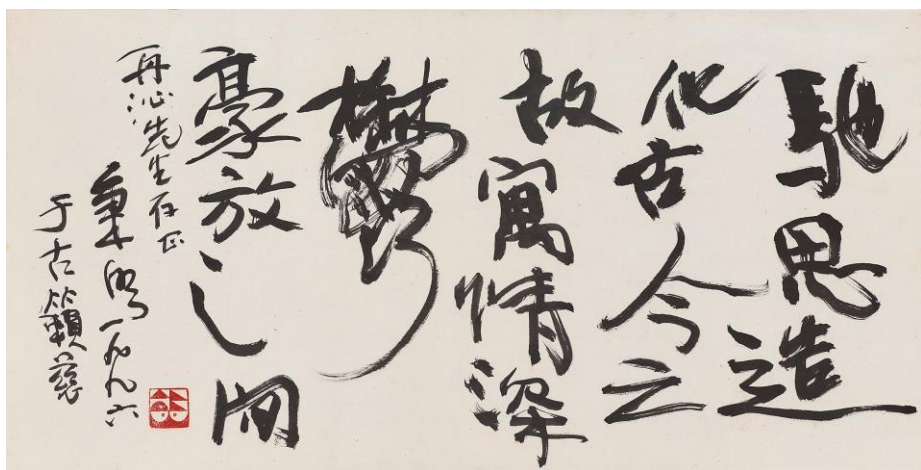 馳思造
化古今之
故寓情深
鬱
豪放之間
再沁先生存正
秉明一九九六
于古籟